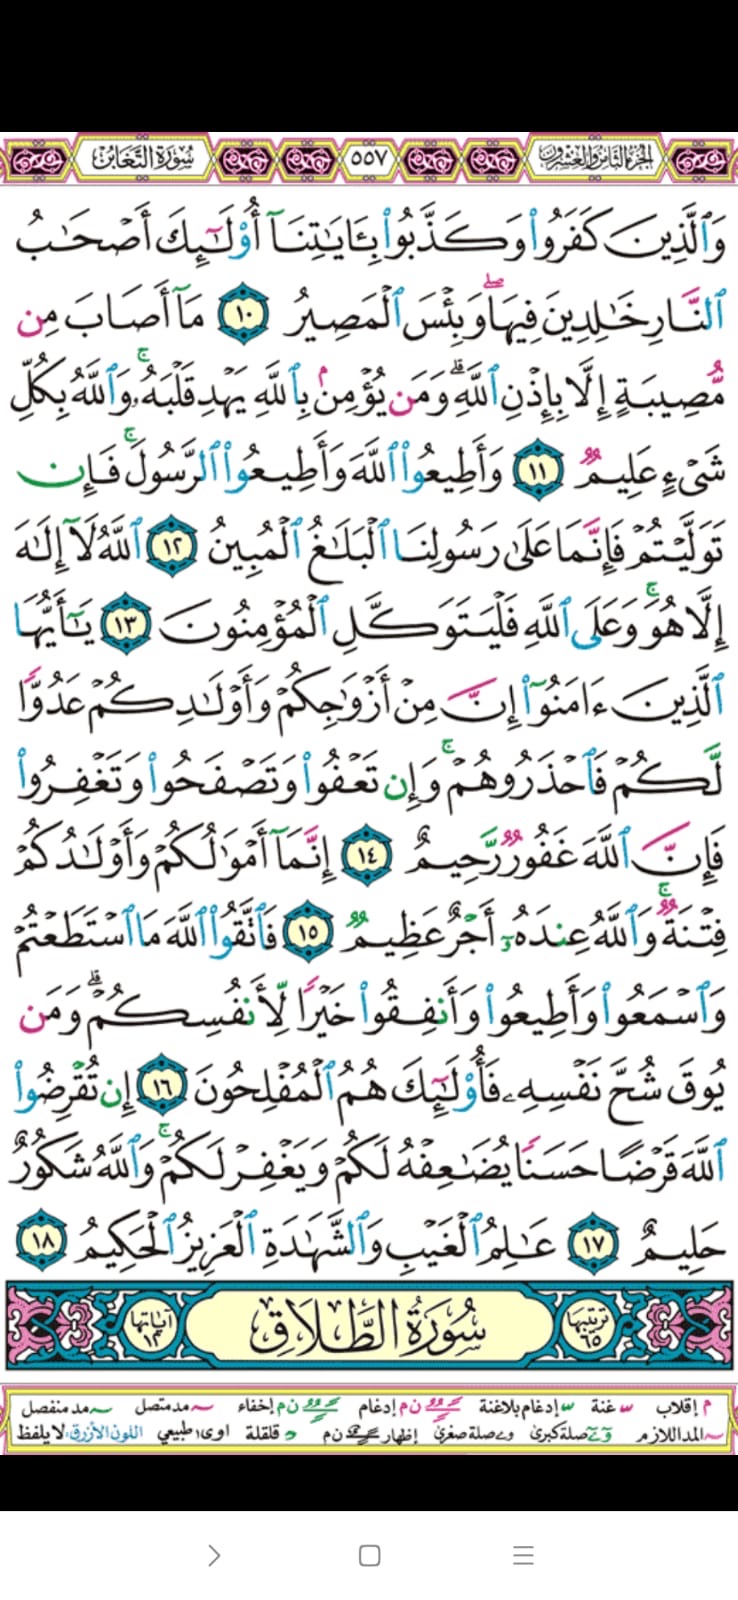 الجزء الثامن والعشرون ٥٥٧ سورة التغابن
وَٱلَّذِينَ كَفَرُوا۟ وَكَذَّبُوا۟ بِـَٔايَـٰتِنَآ أُو۟لَـٰٓئِكَ أَصْحَـٰبُ
ٱلنَّارِ خَـٰلِدِينَ فِيهَا ۖ وَبِئْسَ ٱلْمَصِيرُ ١٠ مَآ أَصَابَ مِن
مُّصِيبَةٍ إِلَّا بِإِذْنِ ٱللَّهِ ۗ وَمَن يُؤْمِنۢ بِٱللَّهِ يَهْدِ قَلْبَهُۥ ۚ وَٱللَّهُ بِكُلِّ
شَىْءٍ عَلِيمٌ ١١ وَأَطِيعُوا۟ ٱللَّهَ وَأَطِيعُوا۟ ٱلرَّسُولَ ۚ فَإِن
تَوَلَّيْتُمْ فَإِنَّمَا عَلَىٰ رَسُولِنَا ٱلْبَلَـٰغُ ٱلْمُبِينُ ١٢ ٱللَّهُ لَآ إِلَـٰهَ
إِلَّا هُوَ ۚ وَعَلَى ٱللَّهِ فَلْيَتَوَكَّلِ ٱلْمُؤْمِنُونَ ١٣ يَـٰٓأَيُّهَا
ٱلَّذِينَ ءَامَنُوٓا۟ إِنَّ مِنْ أَزْوَٰجِكُمْ وَأَوْلَـٰدِكُمْ عَدُوًّا
لَّكُمْ فَٱحْذَرُوهُمْ ۚ وَإِن تَعْفُوا۟ وَتَصْفَحُوا۟ وَتَغْفِرُوا۟
فَإِنَّ ٱللَّهَ غَفُورٌ رَّحِيمٌ ١٤ إِنَّمَآ أَمْوَٰلُكُمْ وَأَوْلَـٰدُكُمْ
فِتْنَةٌ ۚ وَٱللَّهُ عِندَهُۥٓ أَجْرٌ عَظِيمٌ ١٥ فَٱتَّقُوا۟ ٱللَّهَ مَا ٱسْتَطَعْتُمْ
وَٱسْمَعُوا۟ وَأَطِيعُوا۟ وَأَنفِقُوا۟ خَيْرًا لِّأَنفُسِكُمْ ۗ وَمَن
يُوقَ شُحَّ نَفْسِهِۦ فَأُو۟لَـٰٓئِكَ هُمُ ٱلْمُفْلِحُونَ ١٦ إِن تُقْرِضُوا۟
ٱللَّهَ قَرْضًا حَسَنًا يُضَـٰعِفْهُ لَكُمْ وَيَغْفِرْ لَكُمْ ۚ وَٱللَّهُ شَكُورٌ
حَلِيمٌ ١٧ عَـٰلِمُ ٱلْغَيْبِ وَٱلشَّهَـٰدَةِ ٱلْعَزِيزُ ٱلْحَكِيمُ ١٨
ترتيبها ٦٥ سُورَةُ الطَّلَاقِ آياتها ١٢
م إقلاب غنة إدغام بلاغنة ن م إدغام ن م إخفاء مد متصل مد منفصل
المد اللازم صلة كبرى صلة صغرى إظهار ن م قلقلة اوى طبيعي اللون الأزرق: لا يلفظ